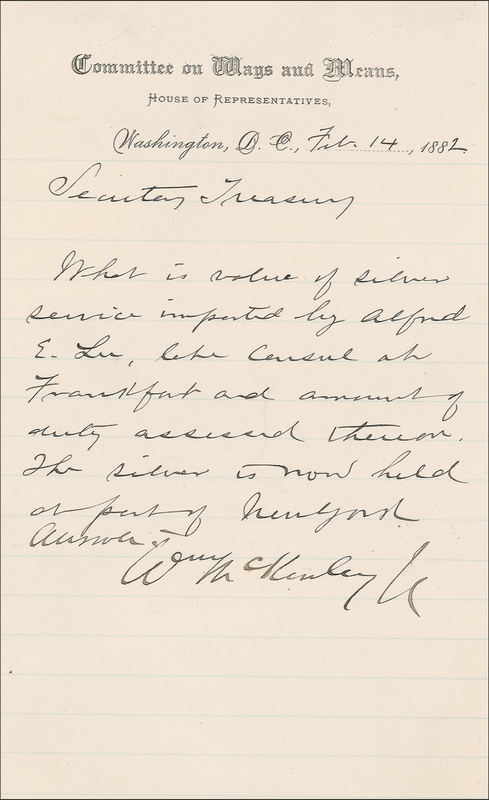 Committee on Ways and Means,
House of Representatives,
Washington, D. C., Feb. 14, 1882
Secretary Treasury
What is value of silver
service imported by Alfred
E. Lee, late Consul at
Frankfort and amount of
duty assessed thereon.
The silver is now held
at port of New York
Answer
Wm McKinley Jr